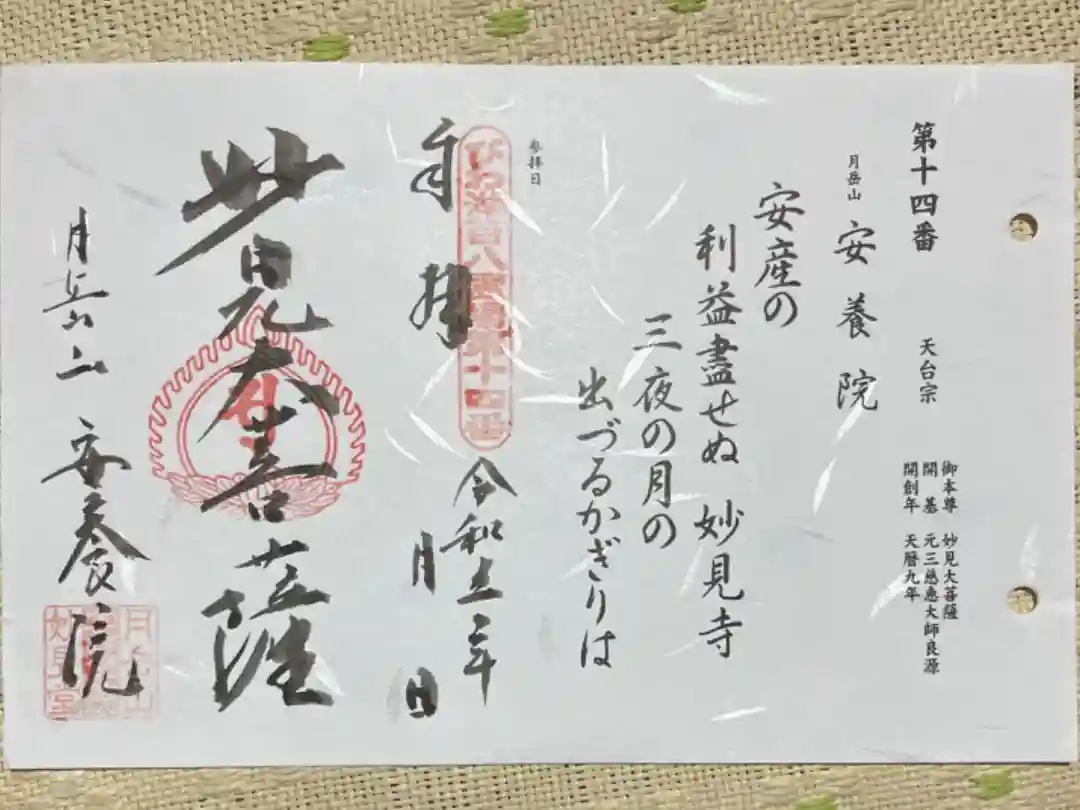 第十四番 天台宗
御本尊 妙見大菩薩
開基 元三慈恵大師良源
開創年 天暦九年
月岳山 安養院
安産の
利益盡せぬ 妙見寺
三夜の月の
出づるかぎりは
参拝日
びわ湖百八霊場第十四番
奉拝
令和五年
月 日
妙見大菩薩
月岳山 安養院
月岳山
妙見堂